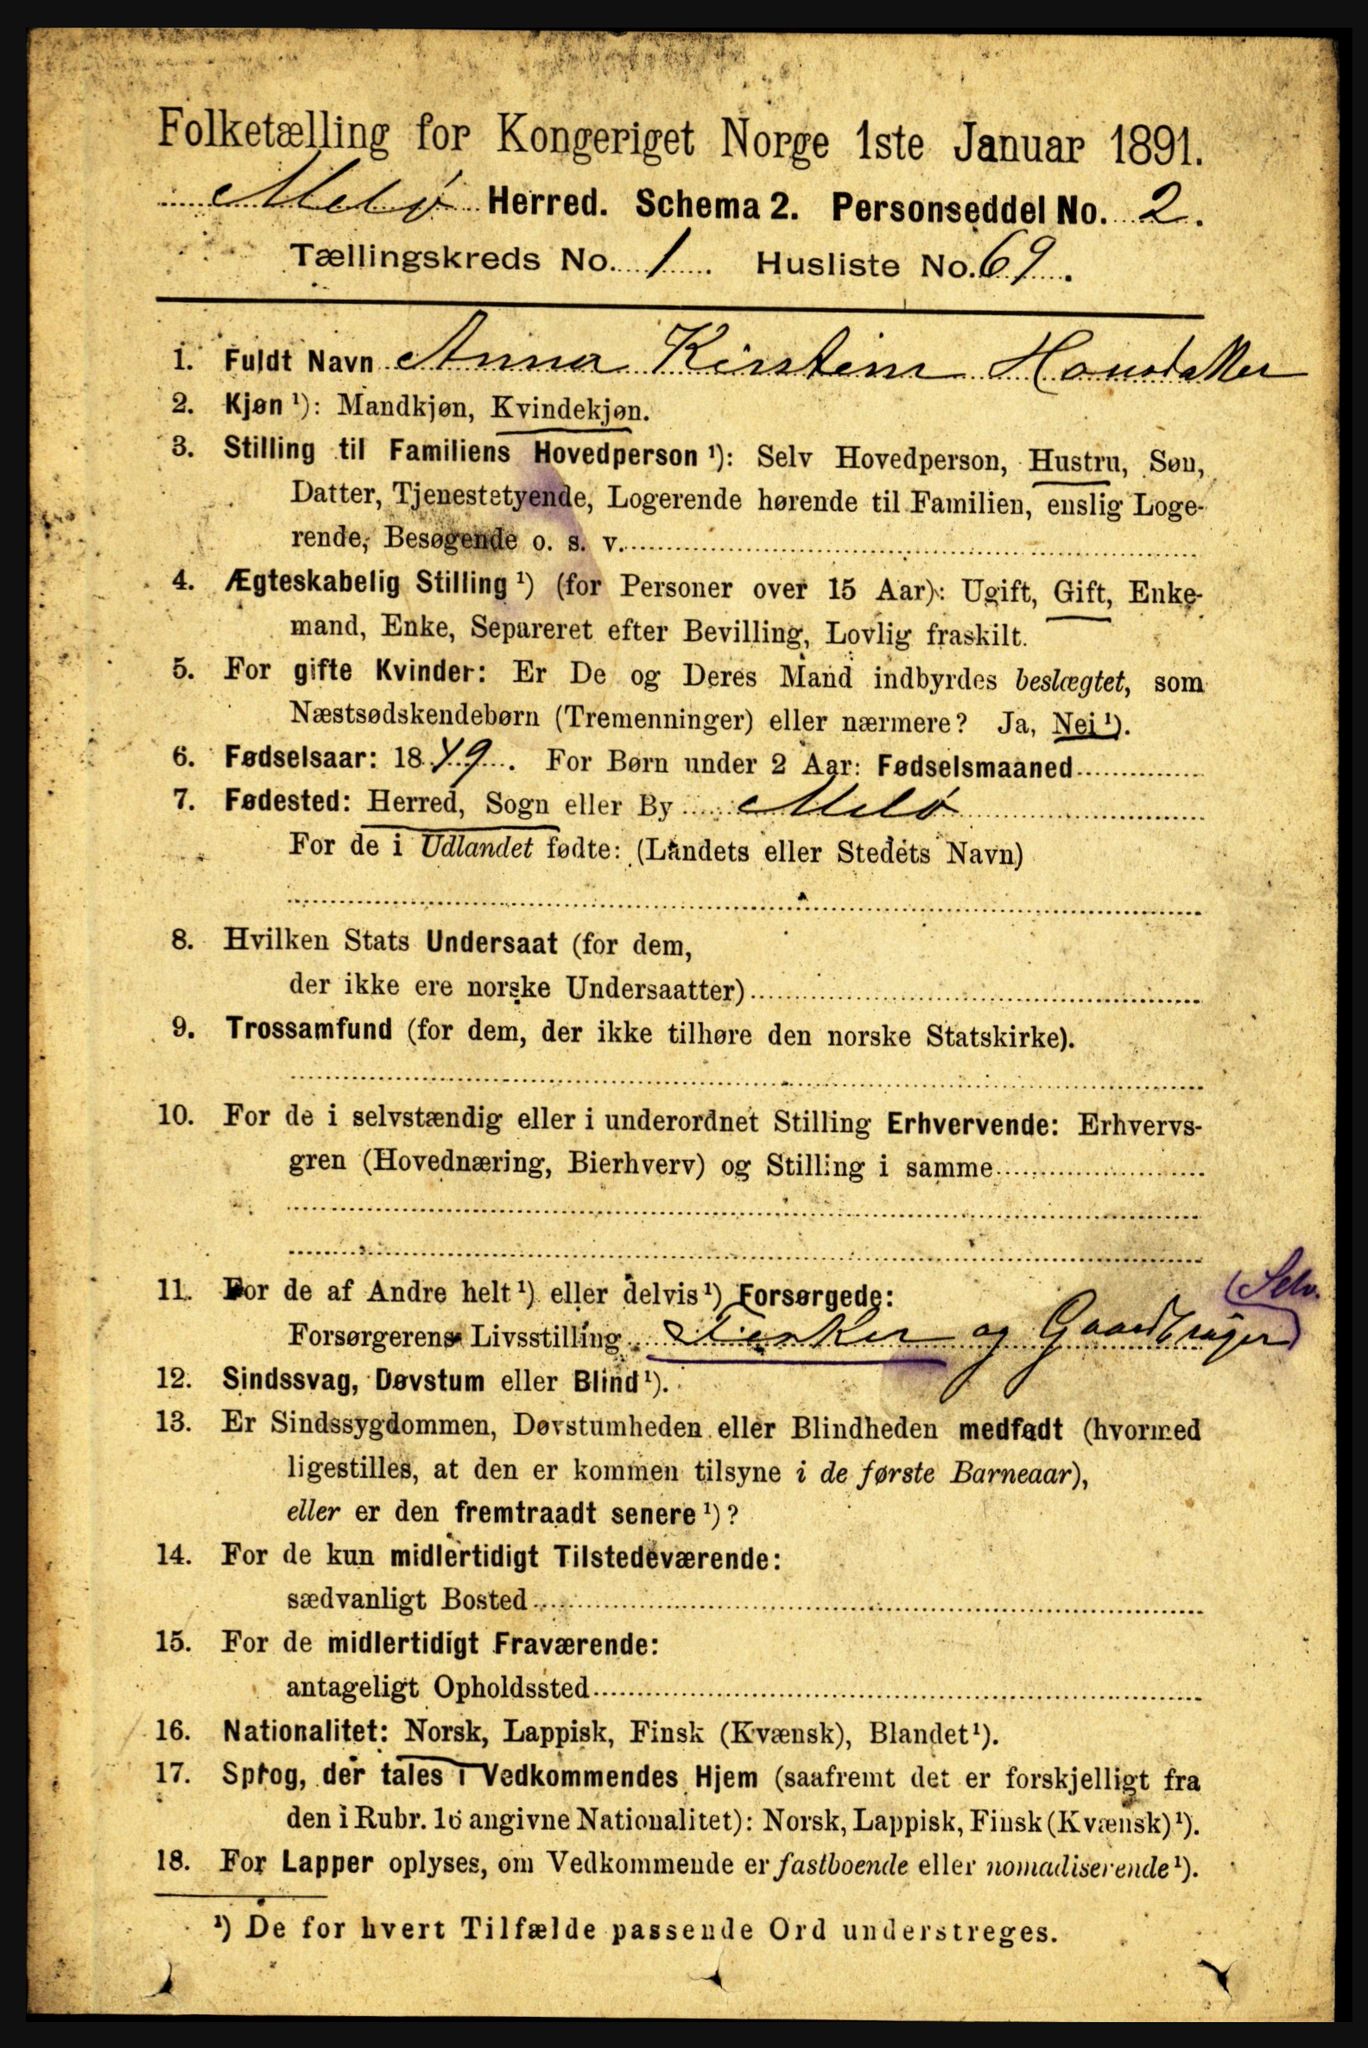 Folketælling for Kongeriget Norge 1ste Januar 1891.
Melø Herred. Schema 2. Personseddel No. 2.
Tællingskreds No. 1. Husliste No. 69.
1. Fuldt Navn Anna Kirstine
2. Kjøn ¹): Mandkjøn, Kvindekjøn.
3. Stilling til Familiens Hovedperson ¹): Selv Hovedperson, Hustru, Søn,
Datter, Tjenestetyende, Logerende hørende til Familien, enslig Loge-
rende, Besøgende o. s. v.
4. Ægteskabelig Stilling ¹) (for Personer over 15 Aar): Ugift, Gift, Enke-
mand, Enke, Separeret efter Bevilling, Lovlig fraskilt.
5. For gifte Kvinder: Er De og Deres Mand indbyrdes beslægtet, som
Næstsødskendebørn (Tremenninger) eller nærmere? Ja, Nei ¹).
6. Fødselsaar: 1849. For Børn under 2 Aar: Fødselsmaaned
7. Fødested: Herred, Sogn eller By Melø
For de i Udlandet fødte: (Landets eller Stedets Navn)
8. Hvilken Stats Undersaat (for dem,
der ikke ere norske Undersaatter)
9. Trossamfund (for dem, der ikke tilhøre den norske Statskirke).
10. For de i selvstændig eller i underordnet Stilling Erhvervende: Erhvervs-
gren (Hovednæring, Bierhverv) og Stilling i samme
11. For de af Andre helt ¹) eller delvis ¹) Forsørgede: Selv.
Forsørgerens Livsstilling Fisker og Gaardbruger
12. Sindssvag, Døvstum eller Blind ¹).
13. Er Sindssygdommen, Døvstumheden eller Blindheden medfødt (hvormed
ligestilles, at den er kommen tilsyne i de første Barneaar),
eller er den fremtraadt senere ¹)?
14. For de kun midlertidigt Tilstedeværende:
sædvanligt Bosted
15. For de midlertidigt Fraværende:
antageligt Opholdssted
16. Nationalitet: Norsk, Lappisk, Finsk (Kvænsk), Blandet ¹).
17. Sprog, der tales i Vedkommendes Hjem (saafremt det er forskjelligt fra
den i Rubr. 16 angivne Nationalitet): Norsk, Lappisk, Finsk (Kvænsk) ¹).
18. For Lapper oplyses, om Vedkommende er fastboende eller nomadiserende ¹).
¹) De for hvert Tilfælde passende Ord understreges.